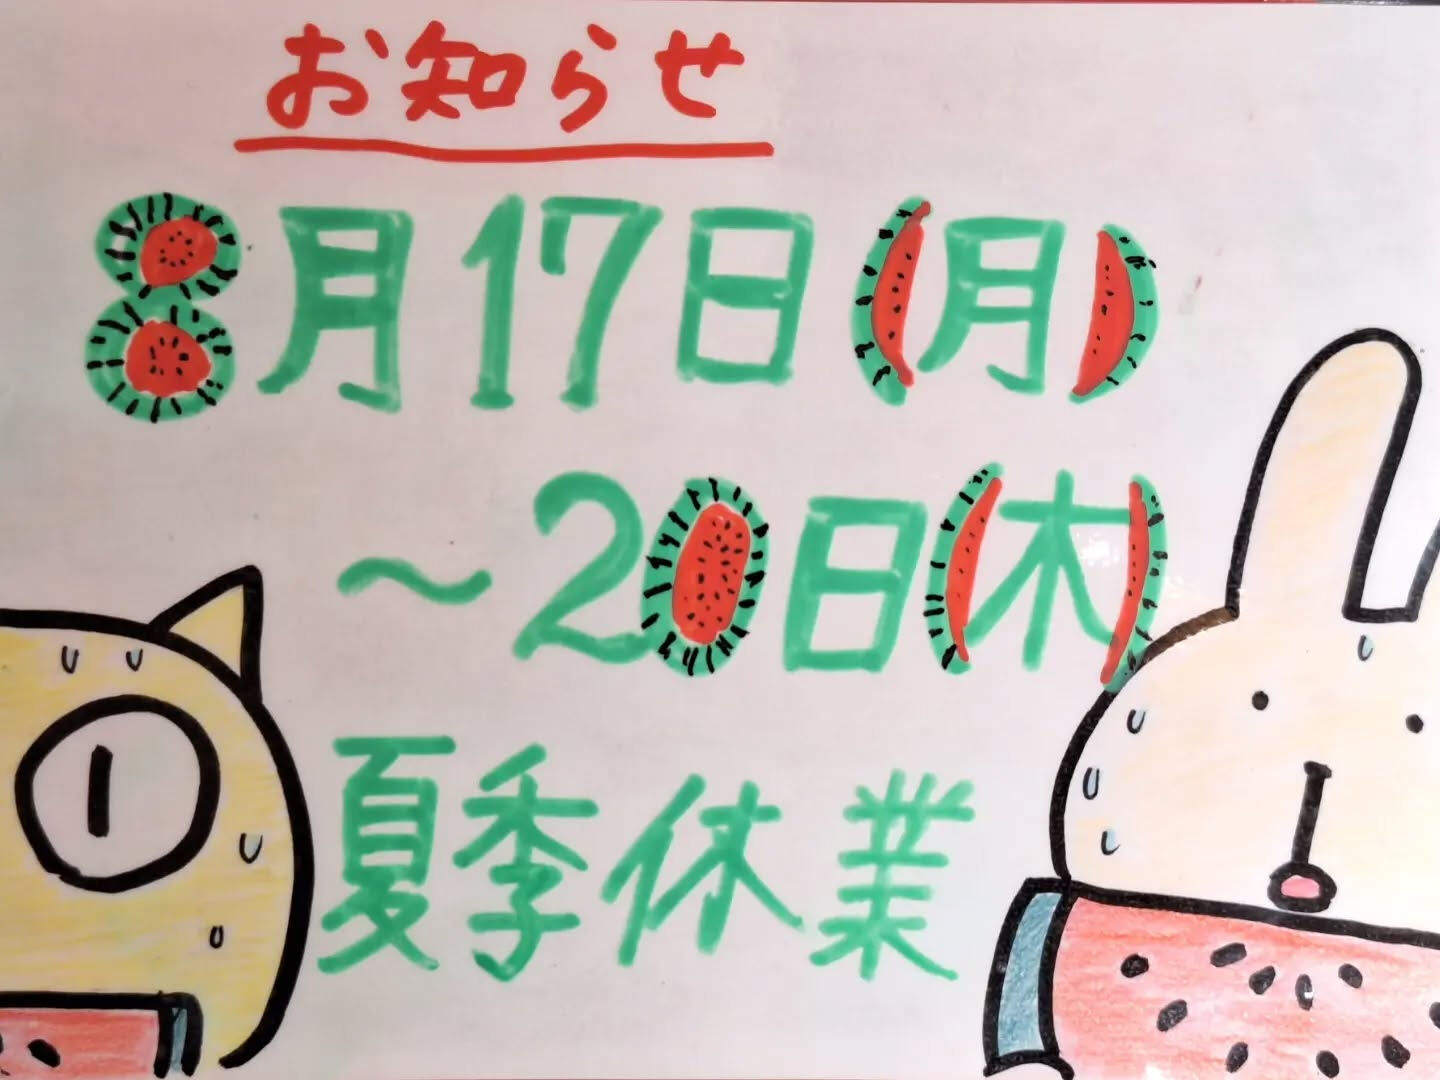 お知らせ
8月17日(月)
〜20日(木)
夏季休業